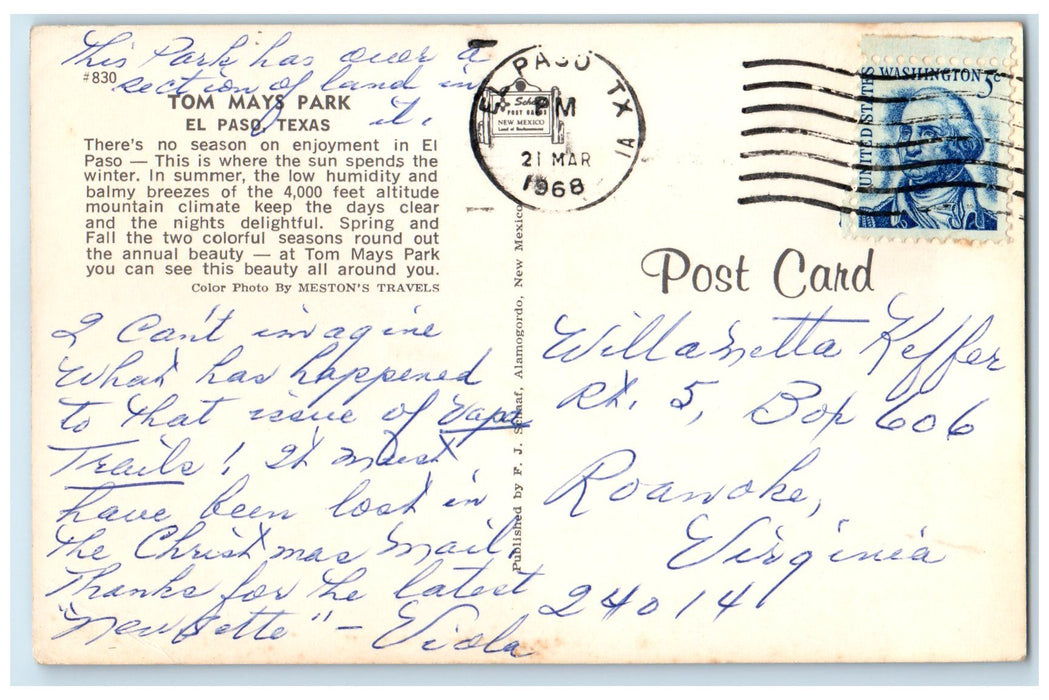 This Park has over a
section of land in
it.
#830
TOM MAYS PARK
EL PASO, TEXAS
There's no season on enjoyment in El
Paso — This is where the sun spends the
winter. In summer, the low humidity and
balmy breezes of the 4,000 feet altitude
mountain climate keep the days clear
and the nights delightful. Spring and
Fall the two colorful seasons round out
the annual beauty — at Tom Mays Park
you can see this beauty all around you.
Color Photo By MESTON'S TRAVELS
I can't imagine
what has happened
to that issue of Vapor
Trails! It must
have been lost in
the Christmas mail.
Thanks for the latest
"Newsette" - Viola
Published by F. J. Schaaf, Alamogordo, New Mexico
EL PASO TX
PM
21 MAR
1968
1A
POST CARDS
NEW MEXICO
Land of Enchantment
UNITED STATES
WASHINGTON 5c
Post Card
Willametta Keffer
Rt. 5, Box 606
Roanoke,
Virginia
24014